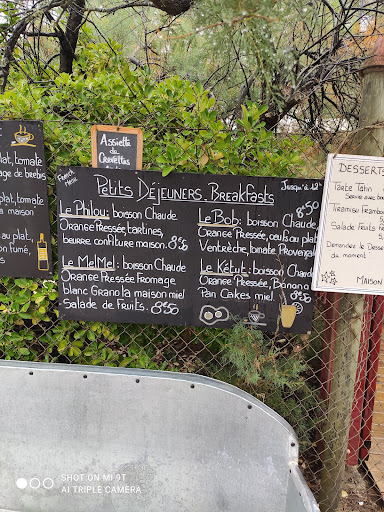 Assiette de
Crevettes
plat, tomate
age de brebis
plat, tomate
maison
au plat,
on fumé,
French
Petits Déjeuners. Breakfasts
Jusqu'à 12h
Le Philou: boisson Chaude
Orange Pressée, tartines,
beurre confiture maison. 8€50
Le MelMel: boisson Chaude
Orange Pressée Fromage
blanc Granola maison miel
Salade de Fruits. 8€50
Le Bob: boisson Chaude 8€50
Orange Pressée, œufs au plat
Ventrèche, tomate Provençale
Le Kétut: boisson Chaude
Orange Pressée, Banana
Pan Cakes miel
DESSERTS
Tarte Tatin
Servie avec
Tiramisu Framboise
Salade Fruits
Demandez le Dessert
du moment
Maison
SHOT ON MI 9T
AI TRIPLE CAMERA